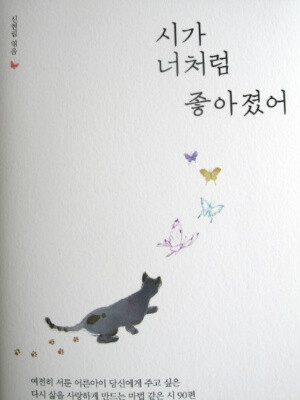 신현림 엮음
시가
너처럼
좋아졌어
여전히 서툰 어른아이 당신에게 주고 싶은
다시 삶을 사랑하게 만드는 마법 같은 시 90편